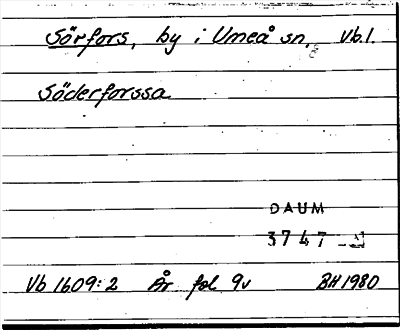 Sörfors, by i Umeå sn, Vb.l.
Söderforssa
DAUM
3747
Vb 1609:2 År fol 9v BH 1980